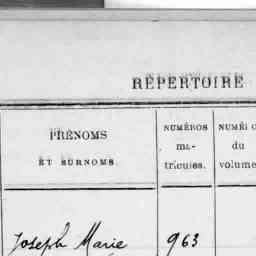 RÉPERTOIRE
PRÉNOMS
ET SURNOMS
NUMÉROS
ma-
tricules.
du
volume
Joseph Marie
963